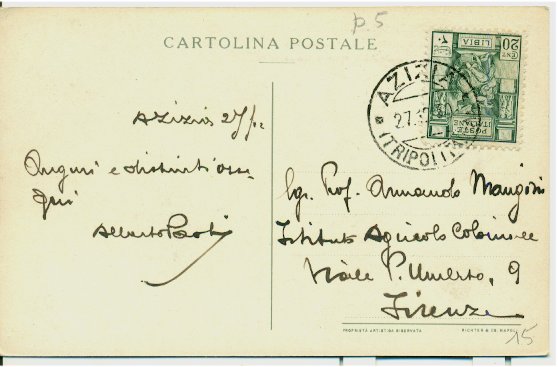 p 5
CARTOLINA POSTALE
20 CENT
LIBIA
POSTE ITALIANE
AZIZIA
27.12.30
(TRIPOLI
Azizia 27/12
Auguri e distinti osse-
qui
Alberto Paoli
Sig. Prof. Armando Maugini
Istituto Agricolo Coloniale
Viale P. Umberto, 9
Firenze
PROPRIETÀ ARTISTICA RISERVATA
RICHTER & CO. NAPOLI
15